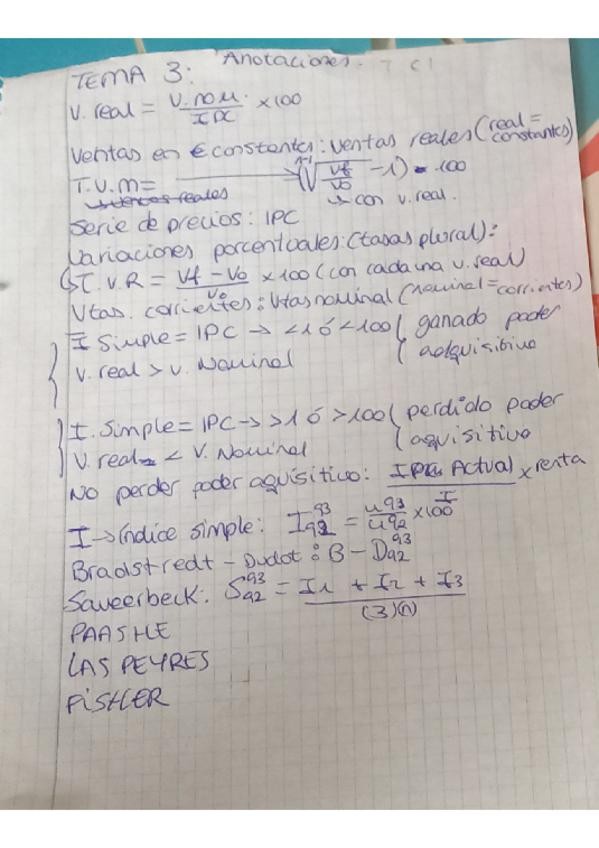 Anotaciones.
TEMA 3:
V. real = V. nom. / IPC x100
Ventas en € constantes: ventas reales (real = constantes)
T.V.m = (ⁿ⁻¹√(Vf/Vo) - 1) · 100
↳ con v. real.
Serie de precios: IPC
Variaciones porcentuales: (tasas plural):
↳ T.V.R = Vf - Vo / Vo x 100 (con cada una v. real)
Vtas. corrientes: Vtas nominal (nominal = corrientes)
I Simple = IPC → < 1 ó < 100 ( ganado poder
V. real > V. Nominal ( adquisitivo
I. Simple = IPC → > 1 ó > 100 ( perdido poder
V. real < V. Nominal ( aquisitivo
No perder poder aquisitivo: Actual x renta
I → índice simple: I 93 92 = u93 / u92 x100
Bradstredt - Dudot: B - D 93 92
Saueerbeck: S 93 92 = I1 + I2 + I3 / (3)(n)
PAASHE
LAS PEYRES
FISHER